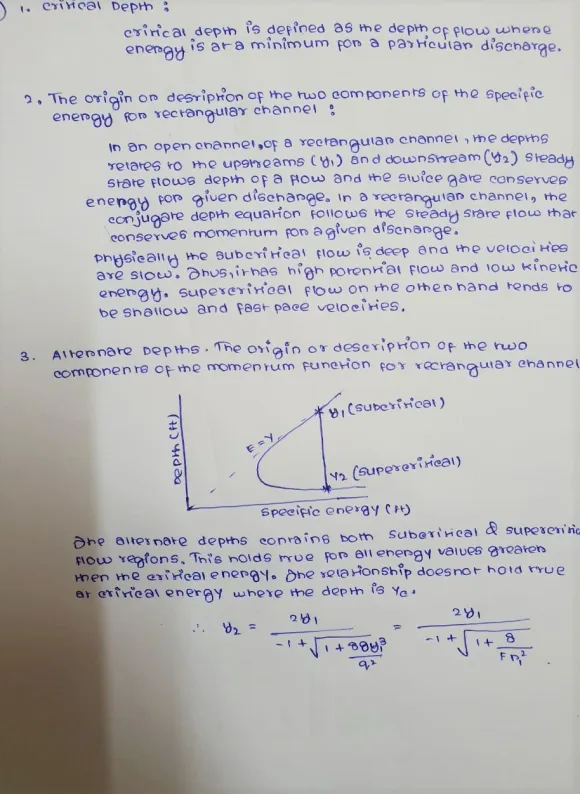 1. Critical Depth :
critical depth is defined as the depth of flow where
energy is at a minimum for a particular discharge.
2. The origin or desription of the two components of the specific
energy for rectangular channel :
In an open channel, of a rectangular channel, the depths
relates to the upstreams (y₁) and downstream (y₂) steady
state flows depth of a flow and the sluice gate conserves
energy for given discharge. In a rectangular channel, the
conjugate depth equation follows the steady state flow that
conserves momentum for a given discharge.
Physically the subcritical flow is deep and the velocities
are slow. Thus, it has high potential flow and low kinetic
energy. Supercritical flow on the other hand tends to
be shallow and fast pace velocities.
3. Alternate Depths. The origin or description of the two
components of the momentum function for rectangular channel
Depth (ft)
E = Y
y₁ (subcritical)
y₂ (supercritical)
Specific energy (ft)
The alternate depths contains both subcritical & supercritic
flow regions. This holds true for all energy values greater
then the critical energy. The relationship does not hold true
at critical energy where the depth is yc.
∴ y₂ = 2y₁ / (-1 + √(1 + 8gy₁³/q²)) = 2y₁ / (-1 + √(1 + 8/Fr₁²))